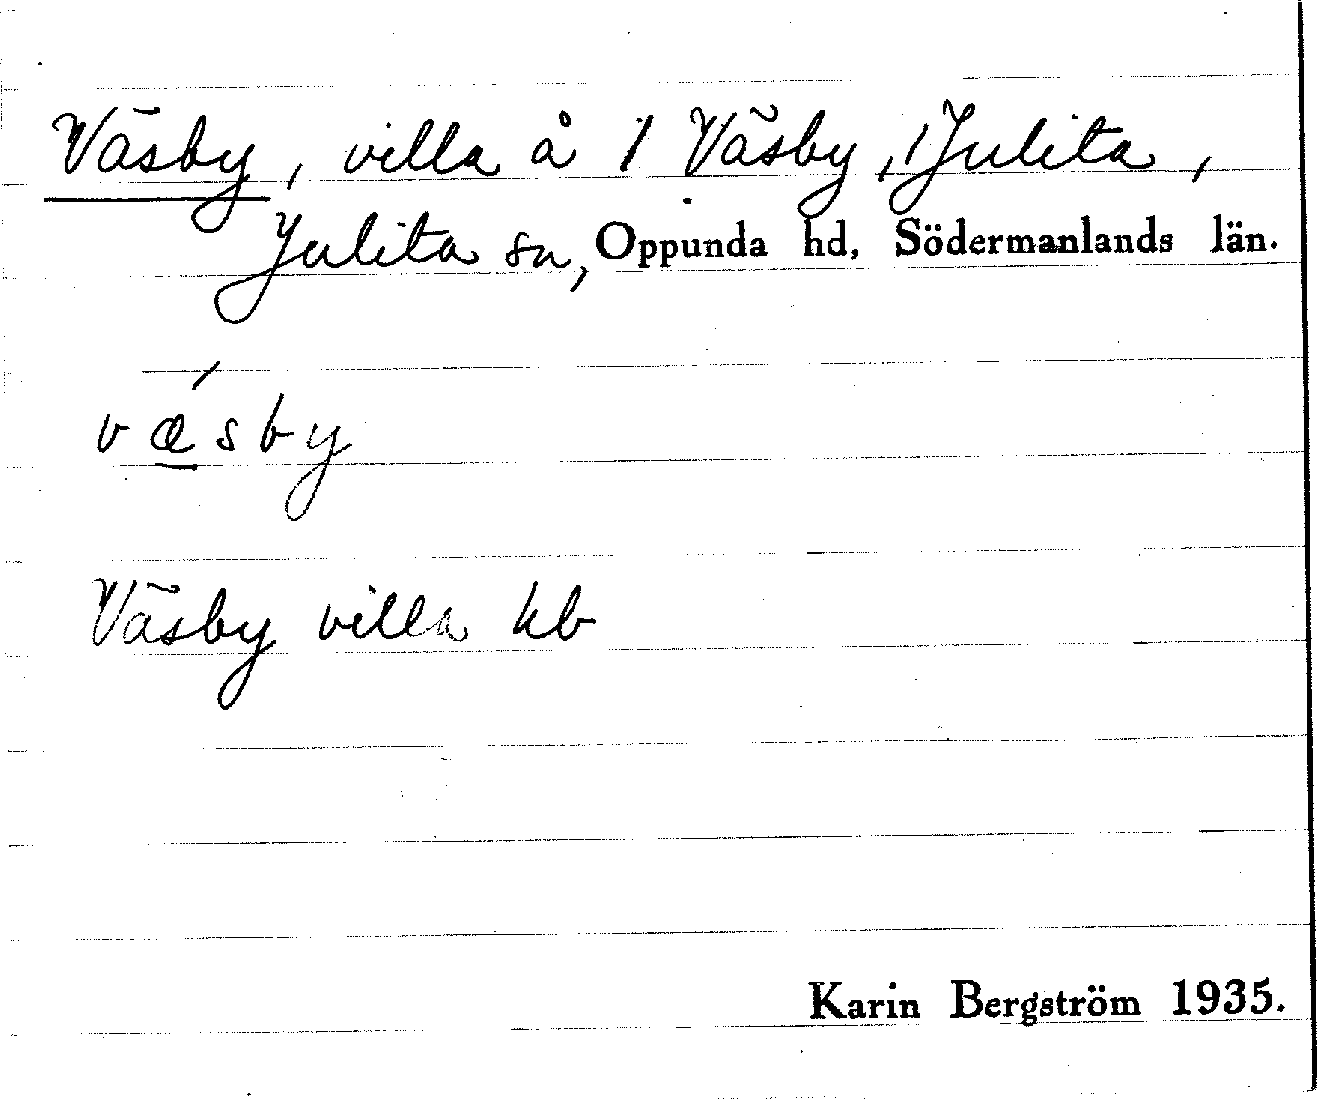 Väsby, villa å 1 Väsby, 1 Julita,
Julita sn, Oppunda hd, Södermanlands län.
vǽsby
Väsby villa kb
Karin Bergström 1935.